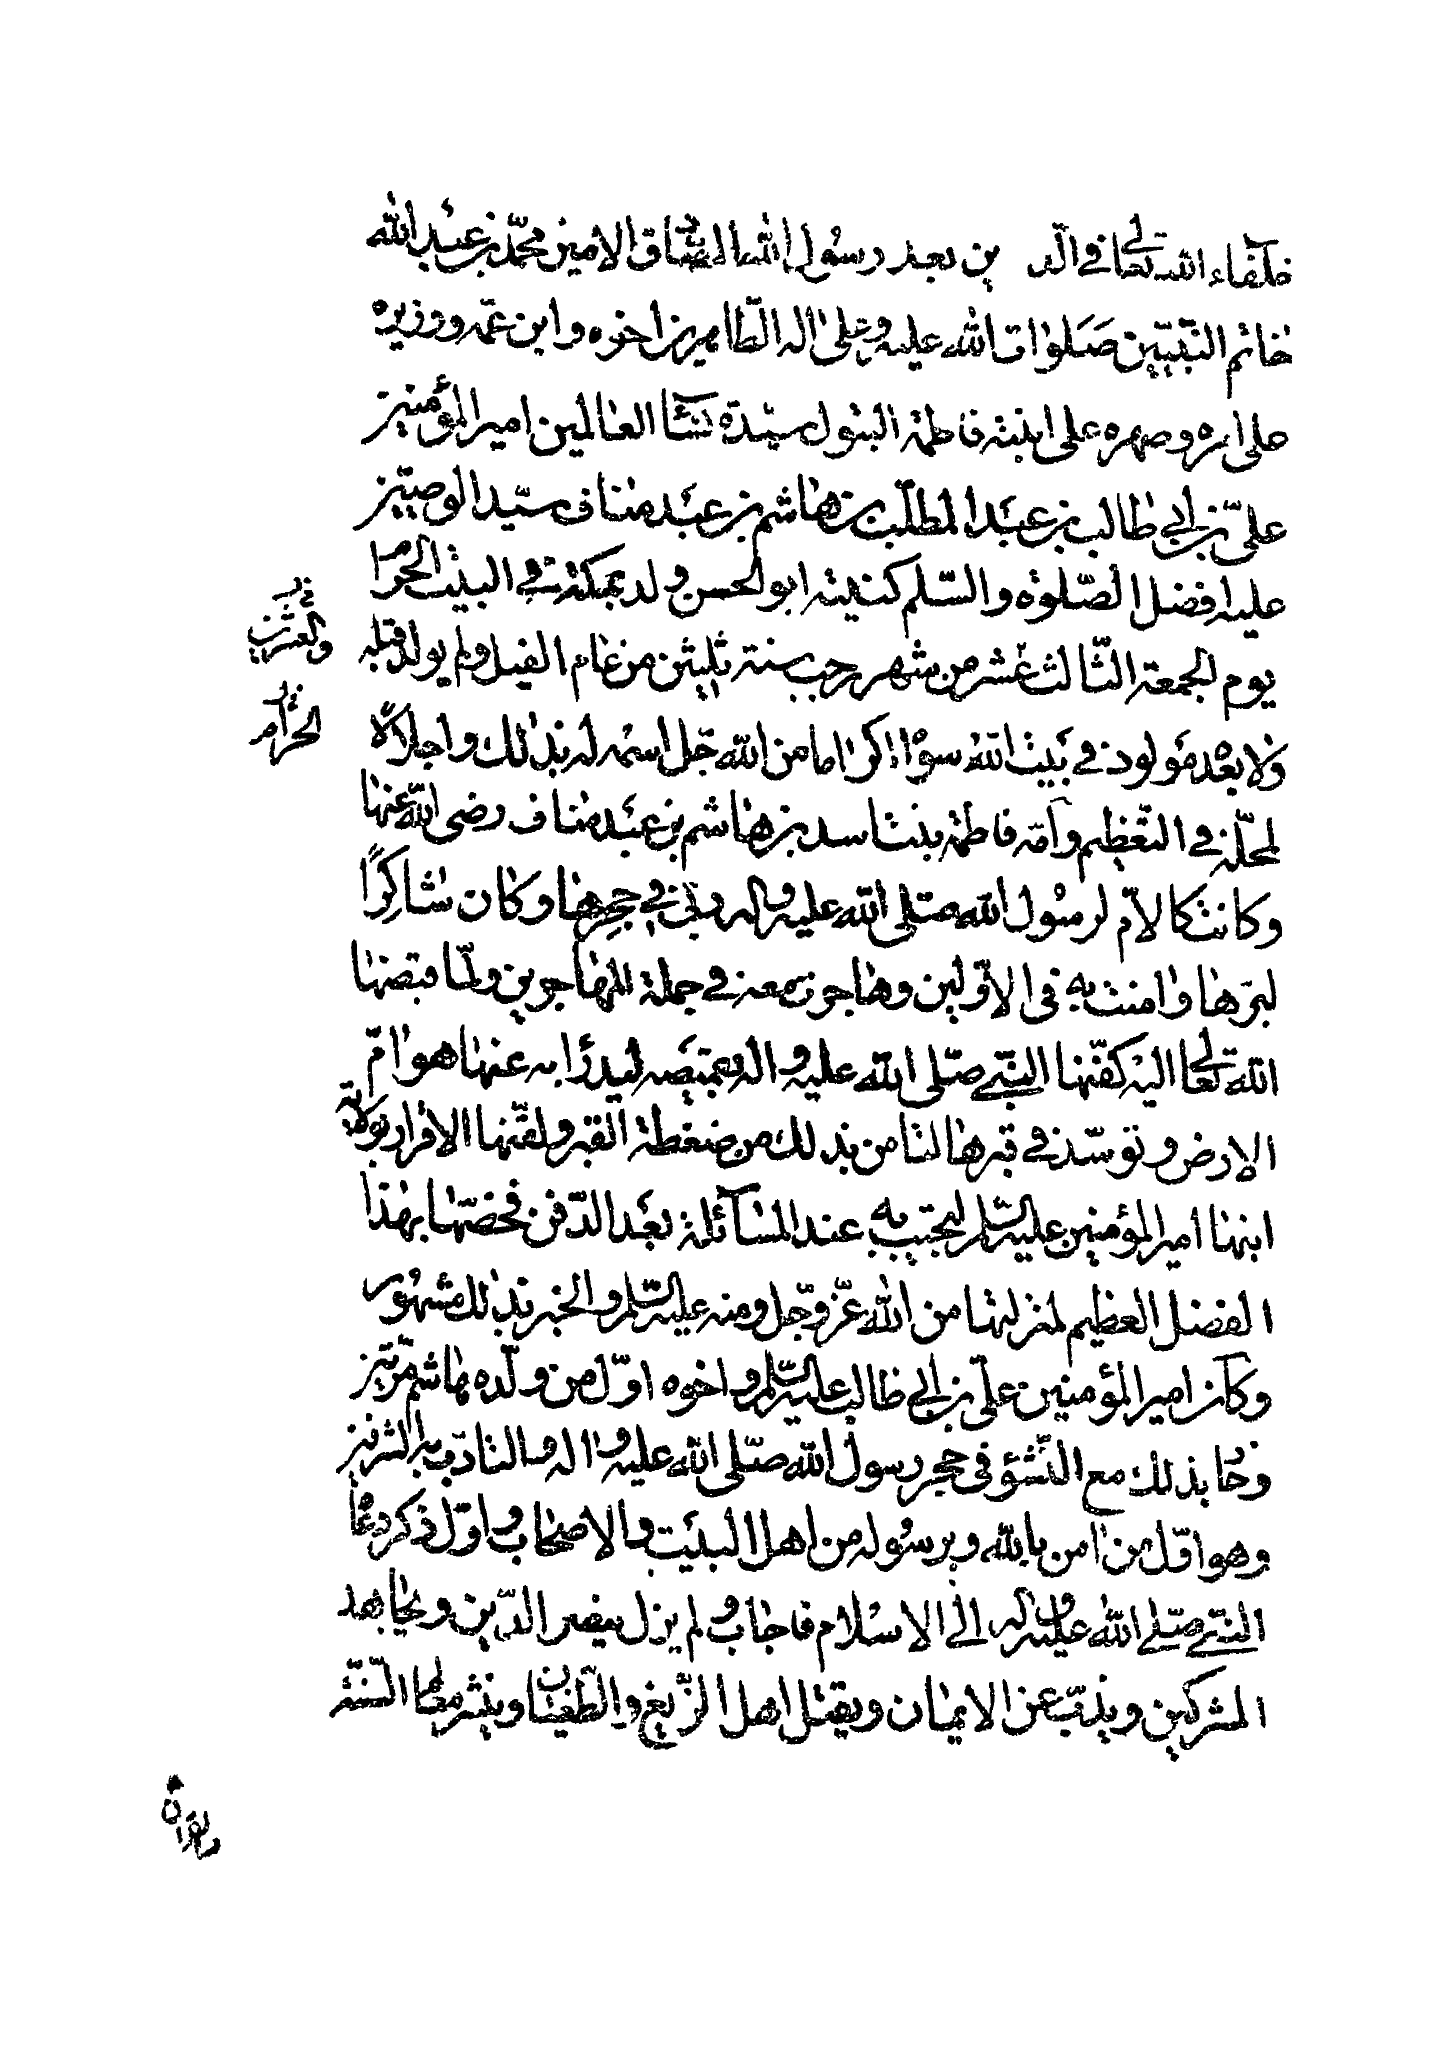 خلفاء الله تعالى في الدين بعد رسول الله الصادق الامين محمّد بن عبد الله
خاتم النّبيّين صَلوات الله عليه وعلى اله الطّاهرين اخوه وابن عمّه ووزيره
على امره وصهره على ابنته فاطمة البتول سيّدة نسآء العالمين امير المؤمنين
علىّ بن ابي طالب بن عبد المطلّب بن هاشم بن عبد مناف سيّد الوصيّين
عليه افضل الصّلوة والسّلم كنيته ابو الحسن ولد بمكة في البيت الحرام
يوم الجمعة الثّالث عشر من شهر رجب سنة ثلثين من عام الفيل ولم يولد قبله
ولا بعْده مَولود في بَيت اللهِ سوْاه اكراما من الله جّل اسمه له بذلك واجلالًا
لمحلّه في التّعظيم وامّه فاطمة بنت اسد بن هاشم بن عبد مناف رضى الله عنها
وكانت كالاُمّ لرسُول الله صلى الله عليه واله ربّي في حجرها وكان شاكِرًا
لبرّها وامنت به فى الاوّلين وهاجرت معه في جملة المهاجرين ولمّا قبضها
الله تعالى اليه كفّنها النبّي صلّى الله عليه واله بقميصه ليدرأ به عنها هوامّ
الارض وتوسّد في قبرها لتامن بذلك من ضغطة القبر ولقّنها الاقرار بولاية
ابنها امير المؤمنين عليه السّلم لتجيب به عند المسآئلة بعَد الدّفن فخصّها بهذا
الفضل العظيم لمنزلتها من الله عزّ وجّل ومنه عليه السّلم والخبر بذلك مشهُور
وكان امير المؤمنين علىّ بن ابي طالب عليه السّلم واخوه اوّل من ولّده هاشم مرّتين
وحاز بذلك مع النّشؤ فى حجر رسول الله صلّى الله عليه واله والتادّب به الشرفين
وهو اوّل من امن بالله وبرسُوله من اهل البيَت والاصحاب واوّل ذكر دعاه
النبّي صلّى الله عليه واله الى الاسْلام فاجاب ولم يزل ينصر الدّين ويجاهد
المشركين ويذبّ عن الايمان ويقتل اهل الزّيغ والطّغيان وينشر معالم السّنّة
والعشرين
الحرام
والقران